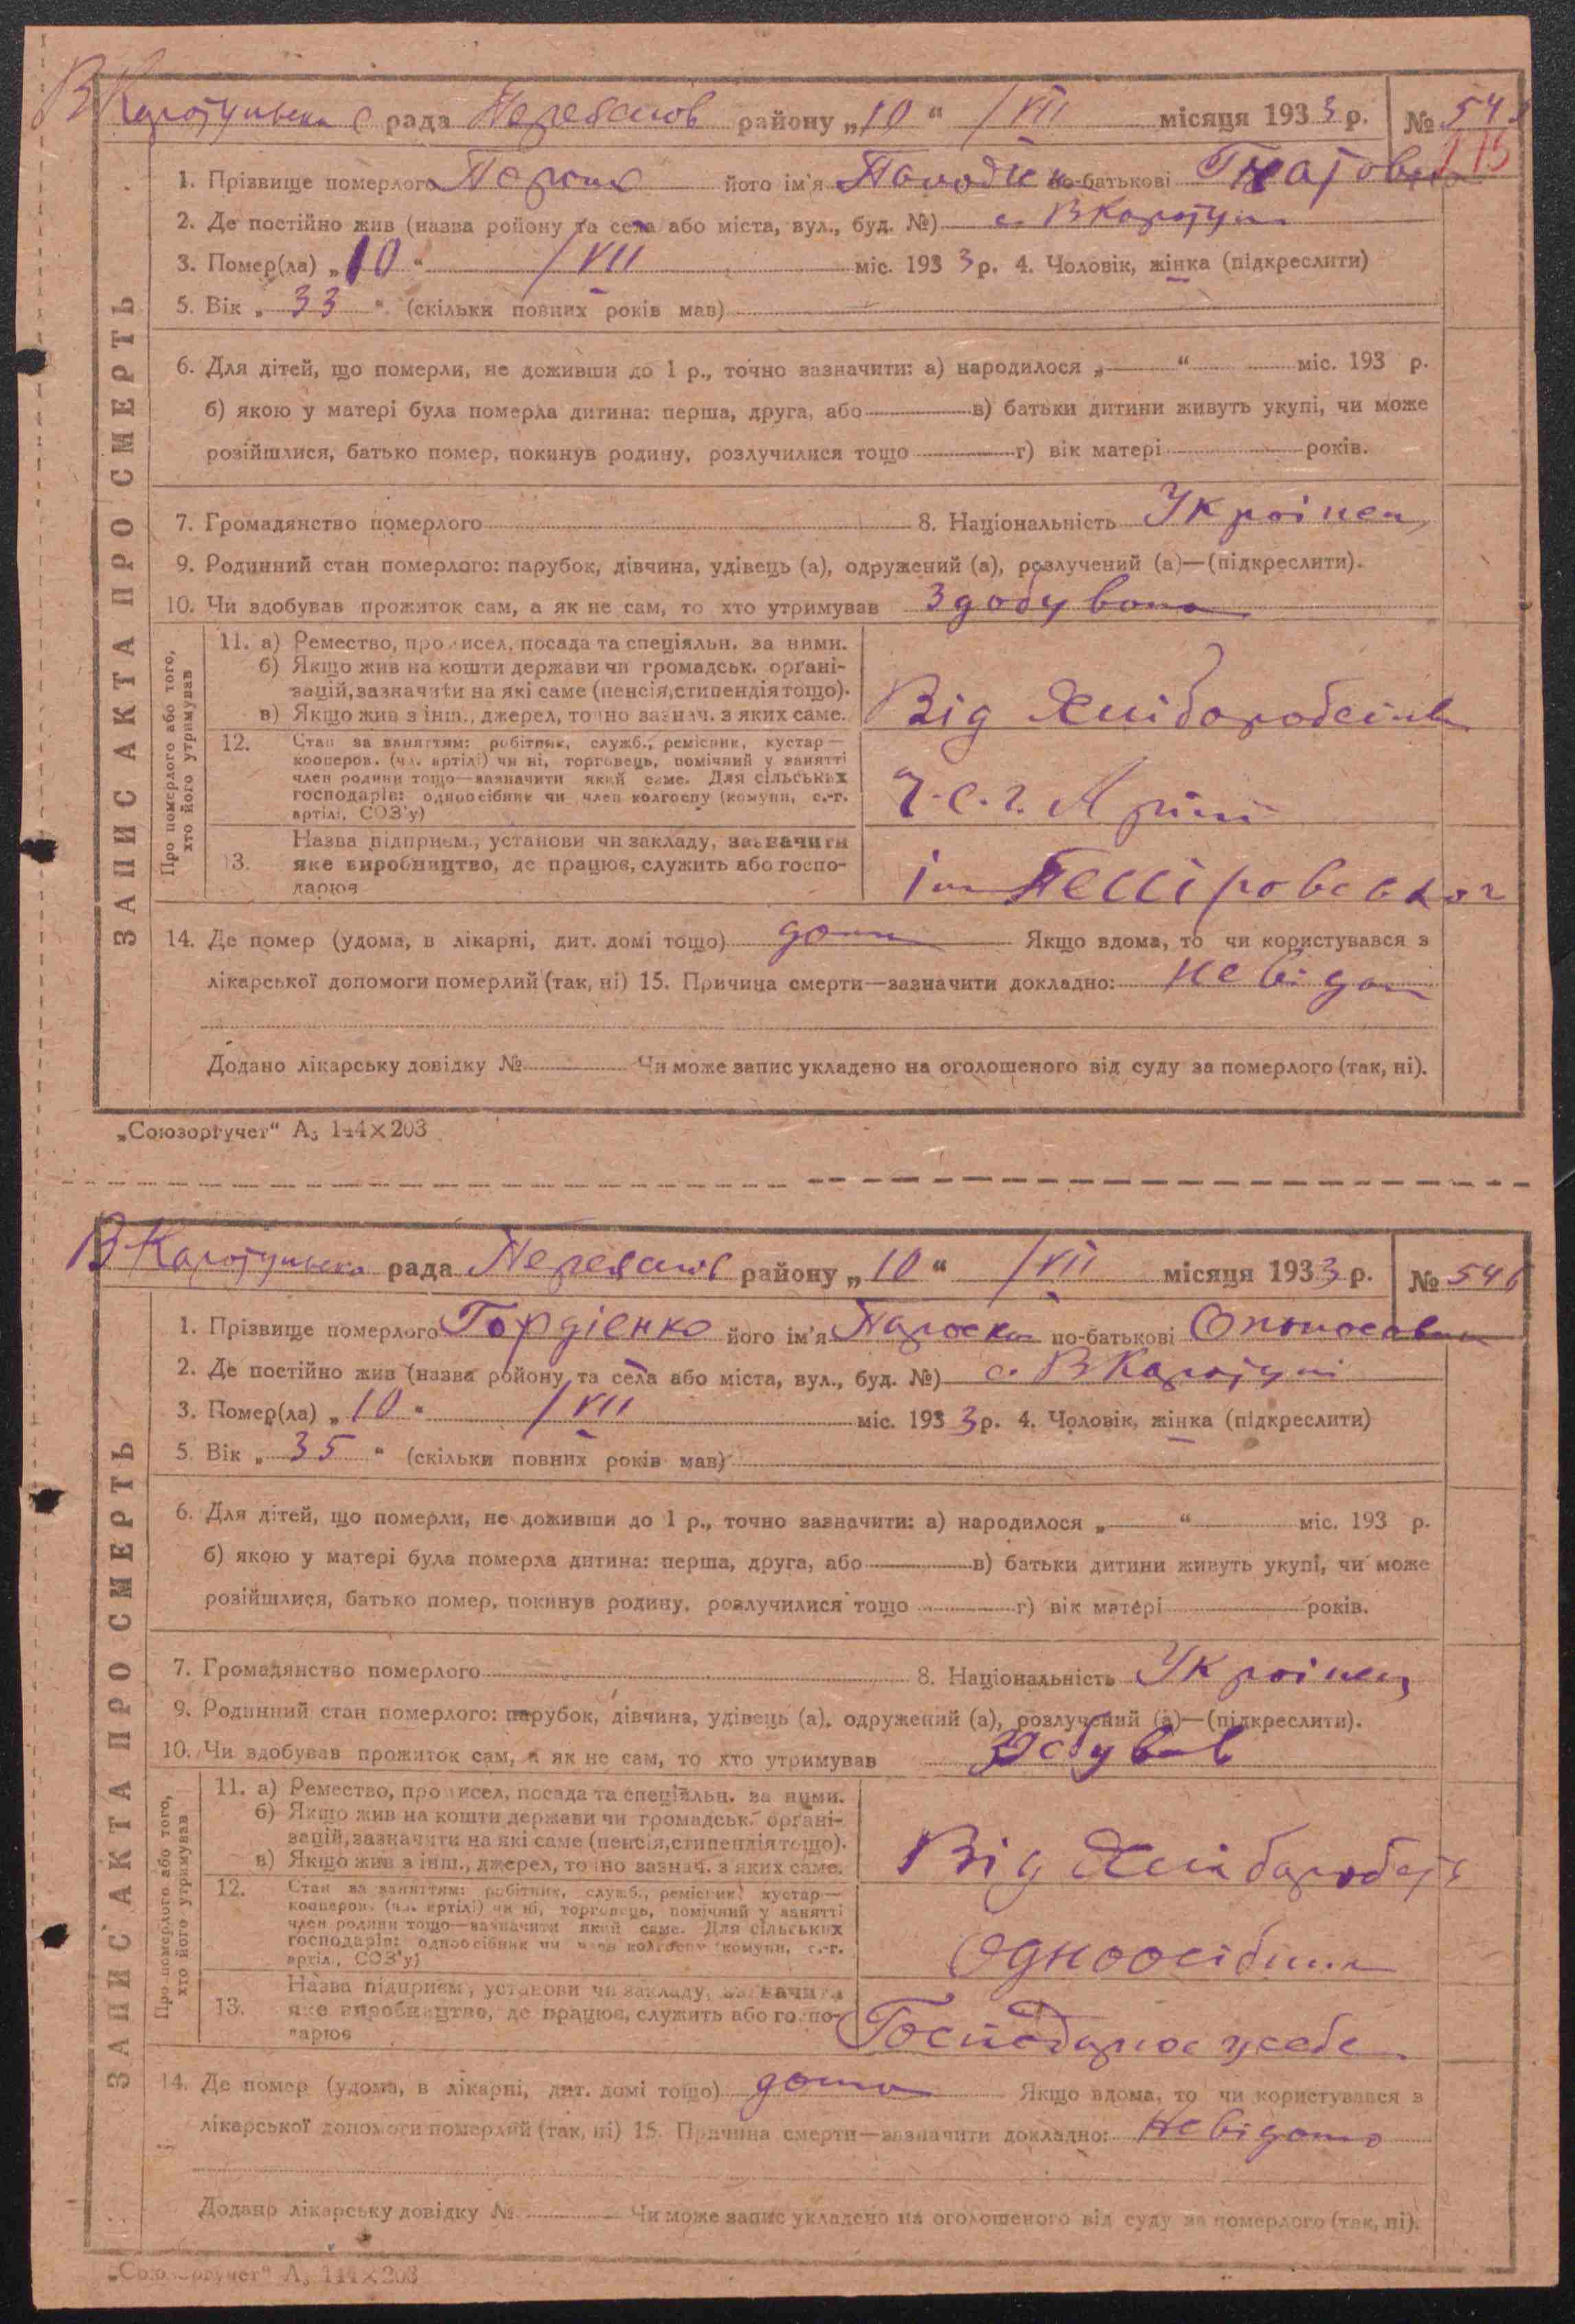 В Каратульська с рада Переяслов району „10“ /VII місяця 1933 р. № 54
115
1. Прізвище померлого його ім'я по-батькові Гнатовна
2. Де постійно жив (назва району та села або міста, вул., буд. №) с. В Каратул
3. Помер(ла) „10“ /VII міс. 1933 р. 4. Чоловік, жінка (підкреслити)
5. Вік „33“ (скільки повних років мав)
6. Для дітей, що померли, не доживши до 1 р., точно зазначити: а) народилося „ “ міс. 193 р.
б) якою у матері була померла дитина: перша, друга, або в) батьки дитини живуть укупі, чи може
розійшлися, батько помер, покинув родину, розлучилися тощо г) вік матері років.
7. Громадянство померлого 8. Національність Українец
9. Родинний стан померлого: парубок, дівчина, удівець (а), одружений (а), розлучений (а)—(підкреслити).
10. Чи здобував прожиток сам, а як не сам, то хто утримував Здобувала
ЗАПИС АКТА ПРО СМЕРТЬ
Про померлого або того, хто його утримував
11. а) Ремество, промисел, посада та спеціяльн. за ними.
б) Якщо жив на кошти держави чи громадськ. органі-
зацій, зазначити на які саме (пенсія, стипендія тощо).
в) Якщо жив з інш., джерел, точно зазнач. з яких саме.
Від
12. Стан за заняттям: робітник, служб., ремісник, кустар—
кооперов. (чл. артілі) чи ні, торговець, помічний у занятті
член родини тощо—зазначити який саме. Для сільських
господарів: одноосібник чи член колгоспу (комуни, с.-г.
артілі, СОЗ'у)
13. Назва підприєм., установи чи закладу, зазначити
яке виробництво, де працює, служить або госпо-
дарює
ім
14. Де помер (удома, в лікарні, дит. домі тощо) дома Якщо вдома, то чи користувався з
лікарської допомоги померлий (так, ні) 15. Причина смерти—зазначити докладно: невідом
Додано лікарську довідку № Чи може запис укладено на оголошеного від суду за померлого (так, ні).
„Союзоргучет“ А₅ 144×203
В Каратульска рада Переяслов району „10“ /VII місяця 1933 р. № 546
1. Прізвище померлого Гордієнко його ім'я Параска по-батькові
2. Де постійно жив (назва району та села або міста, вул., буд. №) с. В Каратулі
3. Помер(ла) „10“ /VII міс. 1933 р. 4. Чоловік, жінка (підкреслити)
5. Вік „35“ (скільки повних років мав)
6. Для дітей, що померли, не доживши до 1 р., точно зазначити: а) народилося „ “ міс. 193 р.
б) якою у матері була померла дитина: перша, друга, або в) батьки дитини живуть укупі, чи може
розійшлися, батько помер, покинув родину, розлучилися тощо г) вік матері років.
7. Громадянство померлого 8. Національність Українец
9. Родинний стан померлого: парубок, дівчина, удівець (а), одружений (а), розлучений (а)—(підкреслити).
10. Чи здобував прожиток сам, а як не сам, то хто утримував Здобував
ЗАПИС АКТА ПРО СМЕРТЬ
Про померлого або того, хто його утримував
11. а) Ремество, промисел, посада та спеціяльн. за ними.
б) Якщо жив на кошти держави чи громадськ. органі-
зацій, зазначити на які саме (пенсія, стипендія тощо).
в) Якщо жив з інш., джерел, точно зазнач. з яких саме.
Від
12. Стан за заняттям: робітник, служб., ремісник, кустар—
кооперов. (чл. артілі) чи ні, торговець, помічний у занятті
член родини тощо—зазначити який саме. Для сільських
господарів: одноосібник чи член колгоспу (комуни, с.-г.
артілі, СОЗ'у)
Одноосібник
13. Назва підприєм., установи чи закладу, зазначити
яке виробництво, де працює, служить або госпо-
дарює
Господарює у себе
14. Де помер (удома, в лікарні, дит. домі тощо) дома Якщо вдома, то чи користувався з
лікарської допомоги померлий (так, ні) 15. Причина смерти—зазначити докладно: невідомо
Додано лікарську довідку № Чи може запис укладено на оголошеного від суду за померлого (так, ні).
„Союзоргучет“ А₅ 144×203